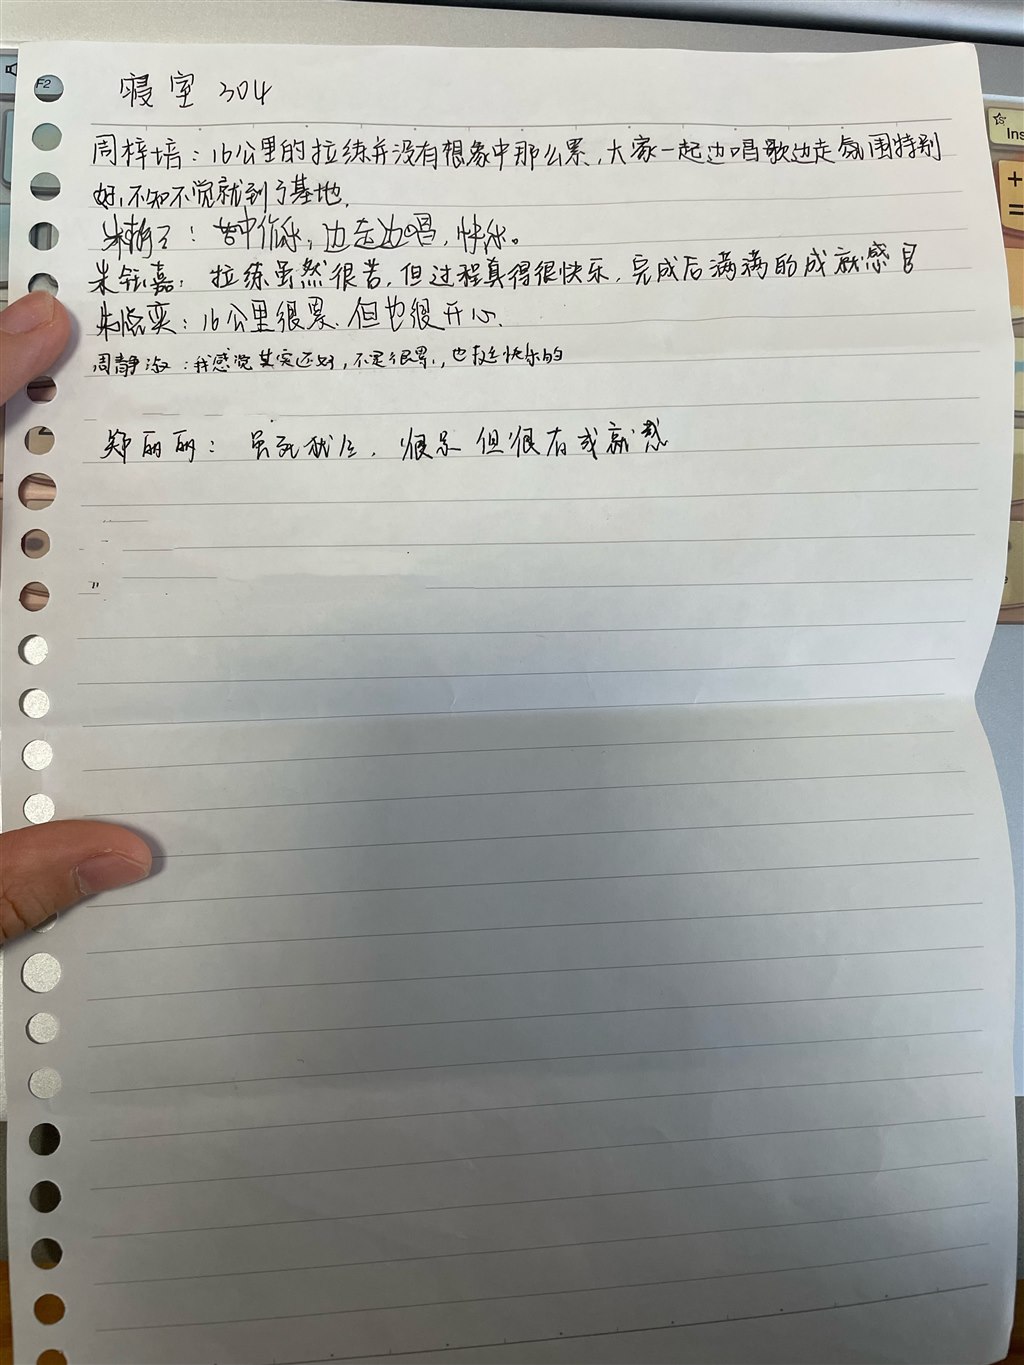 寝室 304
周梓培：16公里的拉练并没有想象中那么累，大家一起边唱歌边走氛围特别
好，不知不觉就到了基地.
朱：苦中作乐，边走边唱，快乐。
朱钰嘉：拉练虽然很苦，但过程真得很快乐，完成后满满的成就感
朱晓奕：16公里很累.但也很开心.
周静淑：我感觉其实还好，不是很累，也挺快乐的
郑丽丽：虽死犹生，很累 但很有成就感
F2
Ins
+
=